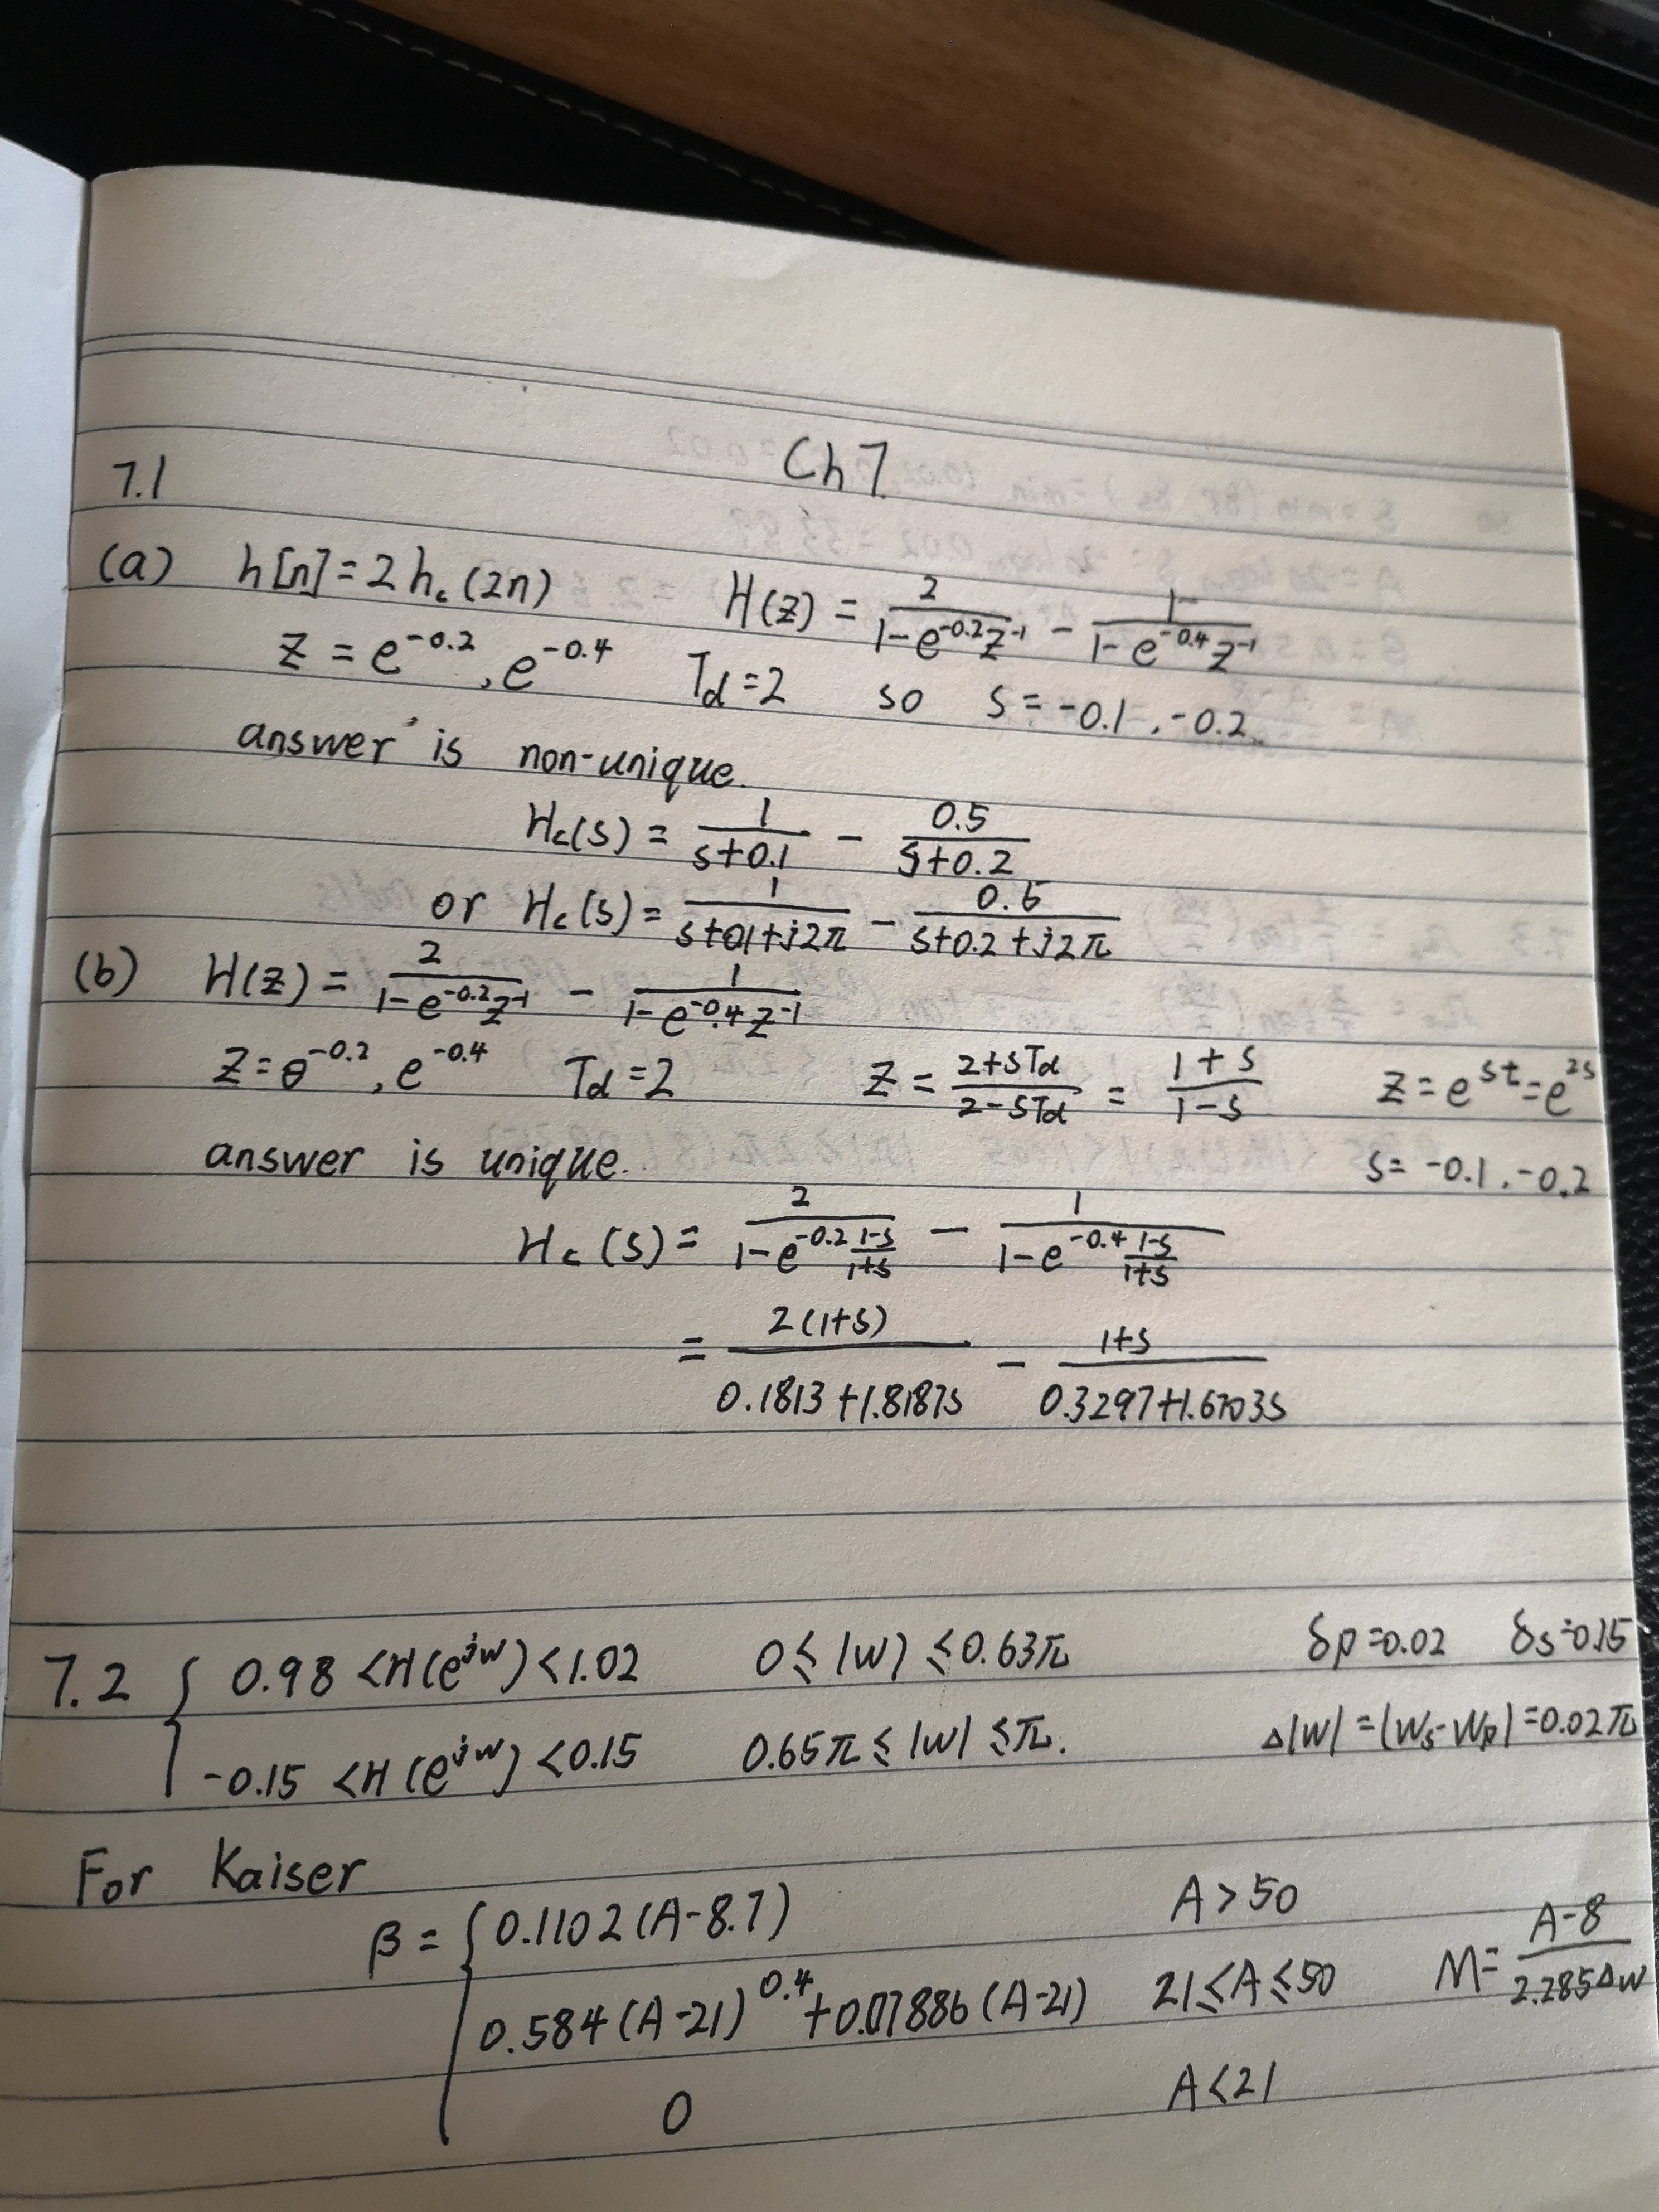 Ch 7
7.1
(a) h[n]=2h_c(2n) H(z) = 2/(1-e^{-0.2}z^{-1}) - 1/(1-e^{-0.4}z^{-1})
z = e^{-0.2}, e^{-0.4} T_d=2 so s = -0.1, -0.2
answer is non-unique.
H_c(s) = 1/(s+0.1) - 0.5/(s+0.2)
or H_c(s) = 1/(s+0.1+j2π) - 0.5/(s+0.2+j2π)
(b) H(z) = 2/(1-e^{-0.2}z^{-1}) - 1/(1-e^{-0.4}z^{-1})
z = e^{-0.2}, e^{-0.4} T_d=2 z = (2+sT_d)/(2-sT_d) = (1+s)/(1-s) z = e^{st} = e^{2s}
answer is unique. s = -0.1, -0.2
H_c(s) = 2/(1-e^{-0.2}(1-s)/(1+s)) - 1/(1-e^{-0.4}(1-s)/(1+s))
= 2(1+s)/(0.1813+1.8187s) - (1+s)/(0.3297+1.6703s)
7.2 { 0.98 <H(e^{jw})<1.02 0≤|w|≤0.63π δp=0.02 δs=0.15
-0.15 <H(e^{jw})<0.15 0.65π≤|w|≤π. Δ|w| = |w_s-w_p| = 0.02π
For Kaiser
β = { 0.1102(A-8.7) A>50
0.584(A-21)^{0.4}+0.07886(A-21) 21≤A≤50 M = (A-8)/(2.285Δw)
0 A<21